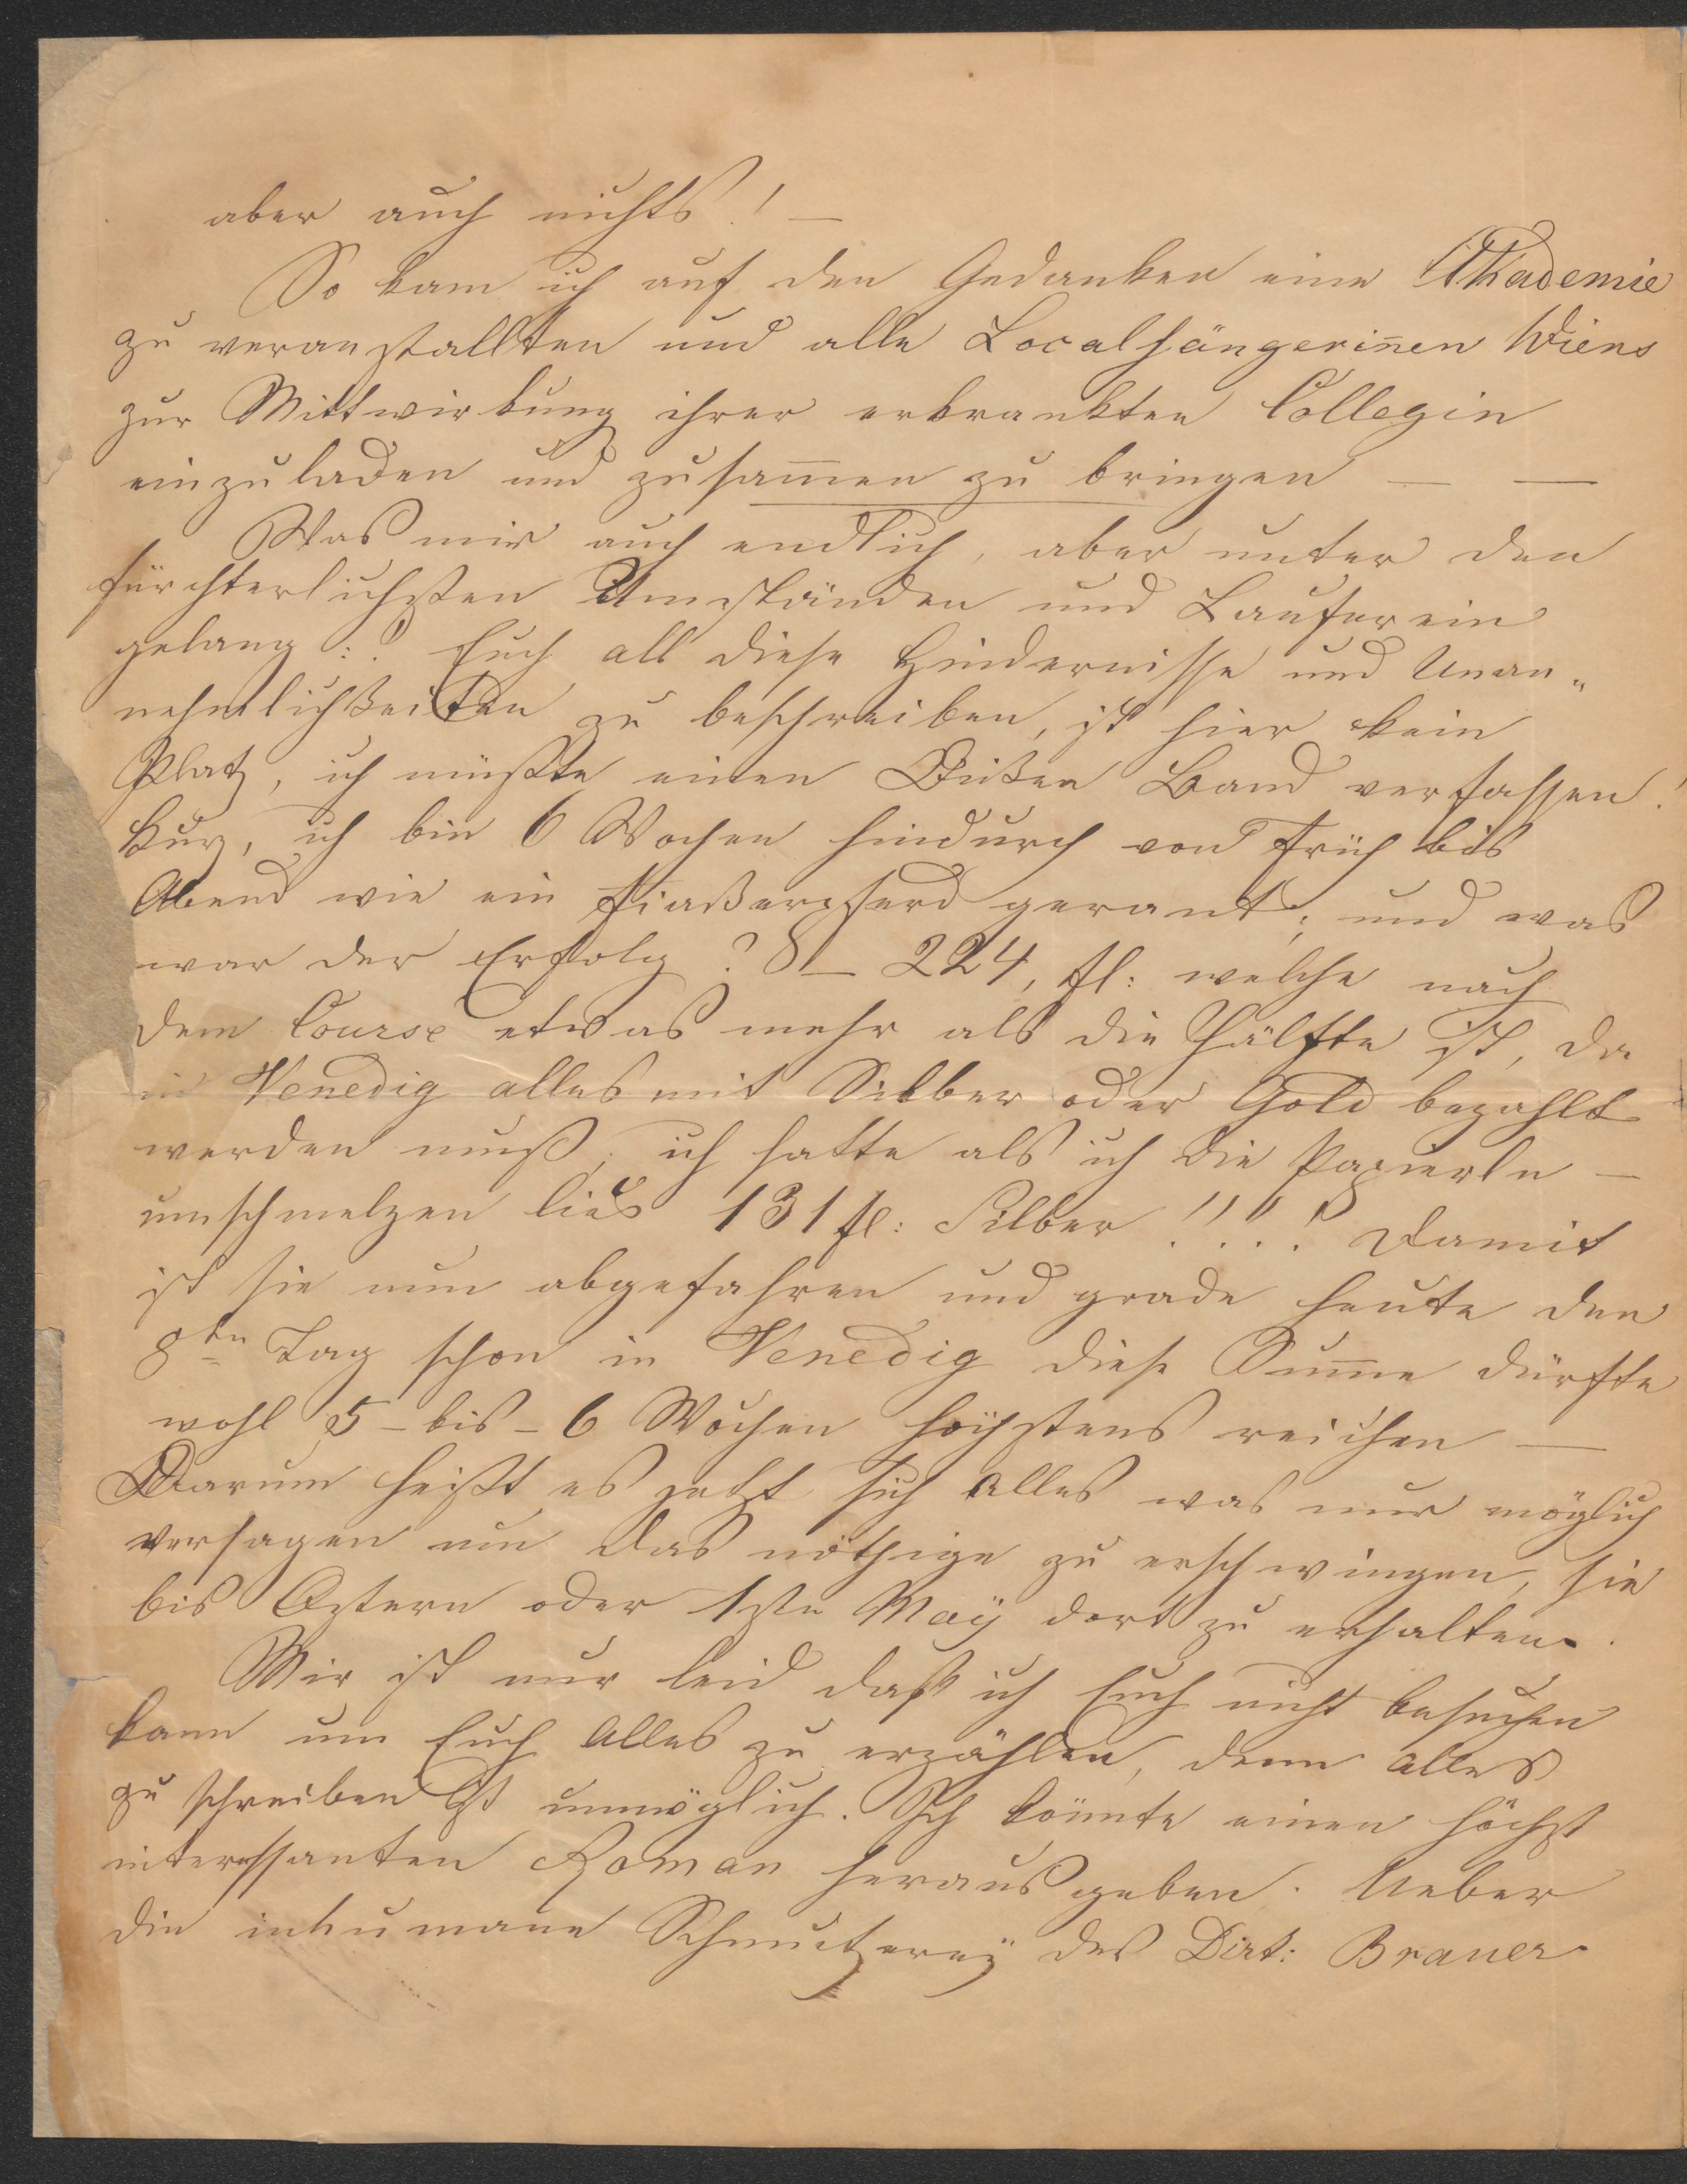 aber auch nichts! —
So kam ich auf den Gedanken eine Akademie
zu veranstallten und alle Localsängerinen Wiens
zur Mittwirkung ihrer erkrankten Collegin
einzuladen und zusamen zu bringen — —
Was mir auch endlich, aber unter den
fürchterlichsten Umständen und Lauferein
gelang:! Euch all diese Hindernisse und Unan„
nehmlichkeiten zu beschreiben, ist hier kein
Platz, ich müßte einen Dicken Band verfassen!
Kurz, ich bin 6 Wochen hindurch von Früh bis
Abend wie ein Fiakerpferd gerant; und was
war der Erfolg? — 224, fl: welche nach
dem Course etwas mehr als die Hälfte ist, da
in Venedig alles mit Silber oder Gold bezahlt
werden muß, ich hatte als ich die Papierln —
umschmelzen lies 131 fl: Silber!!!! Damit
ist sie nun abgefahren und grade heute den
8tn Tag schon in Venedig diese Sume dürfte
wohl 5 – bis – 6 Wochen höchstens reichen —
Darum heißt es jetzt sich alles was nur möglich
versagen um das nöthige zu erschwingen, sie
bis Ostern oder 1ste Maÿ dort zu erhalten.
Mir ist nur leid daß ich Euch nicht besuchen
kann um Euch Alles zu erzählen, denn alles
zu schreiben ist unmöglich. Ich könnte einen höchst
interessanten Roman herausgeben. Ueber
die inhumane Schmutzereÿ des Dirt: Brauer